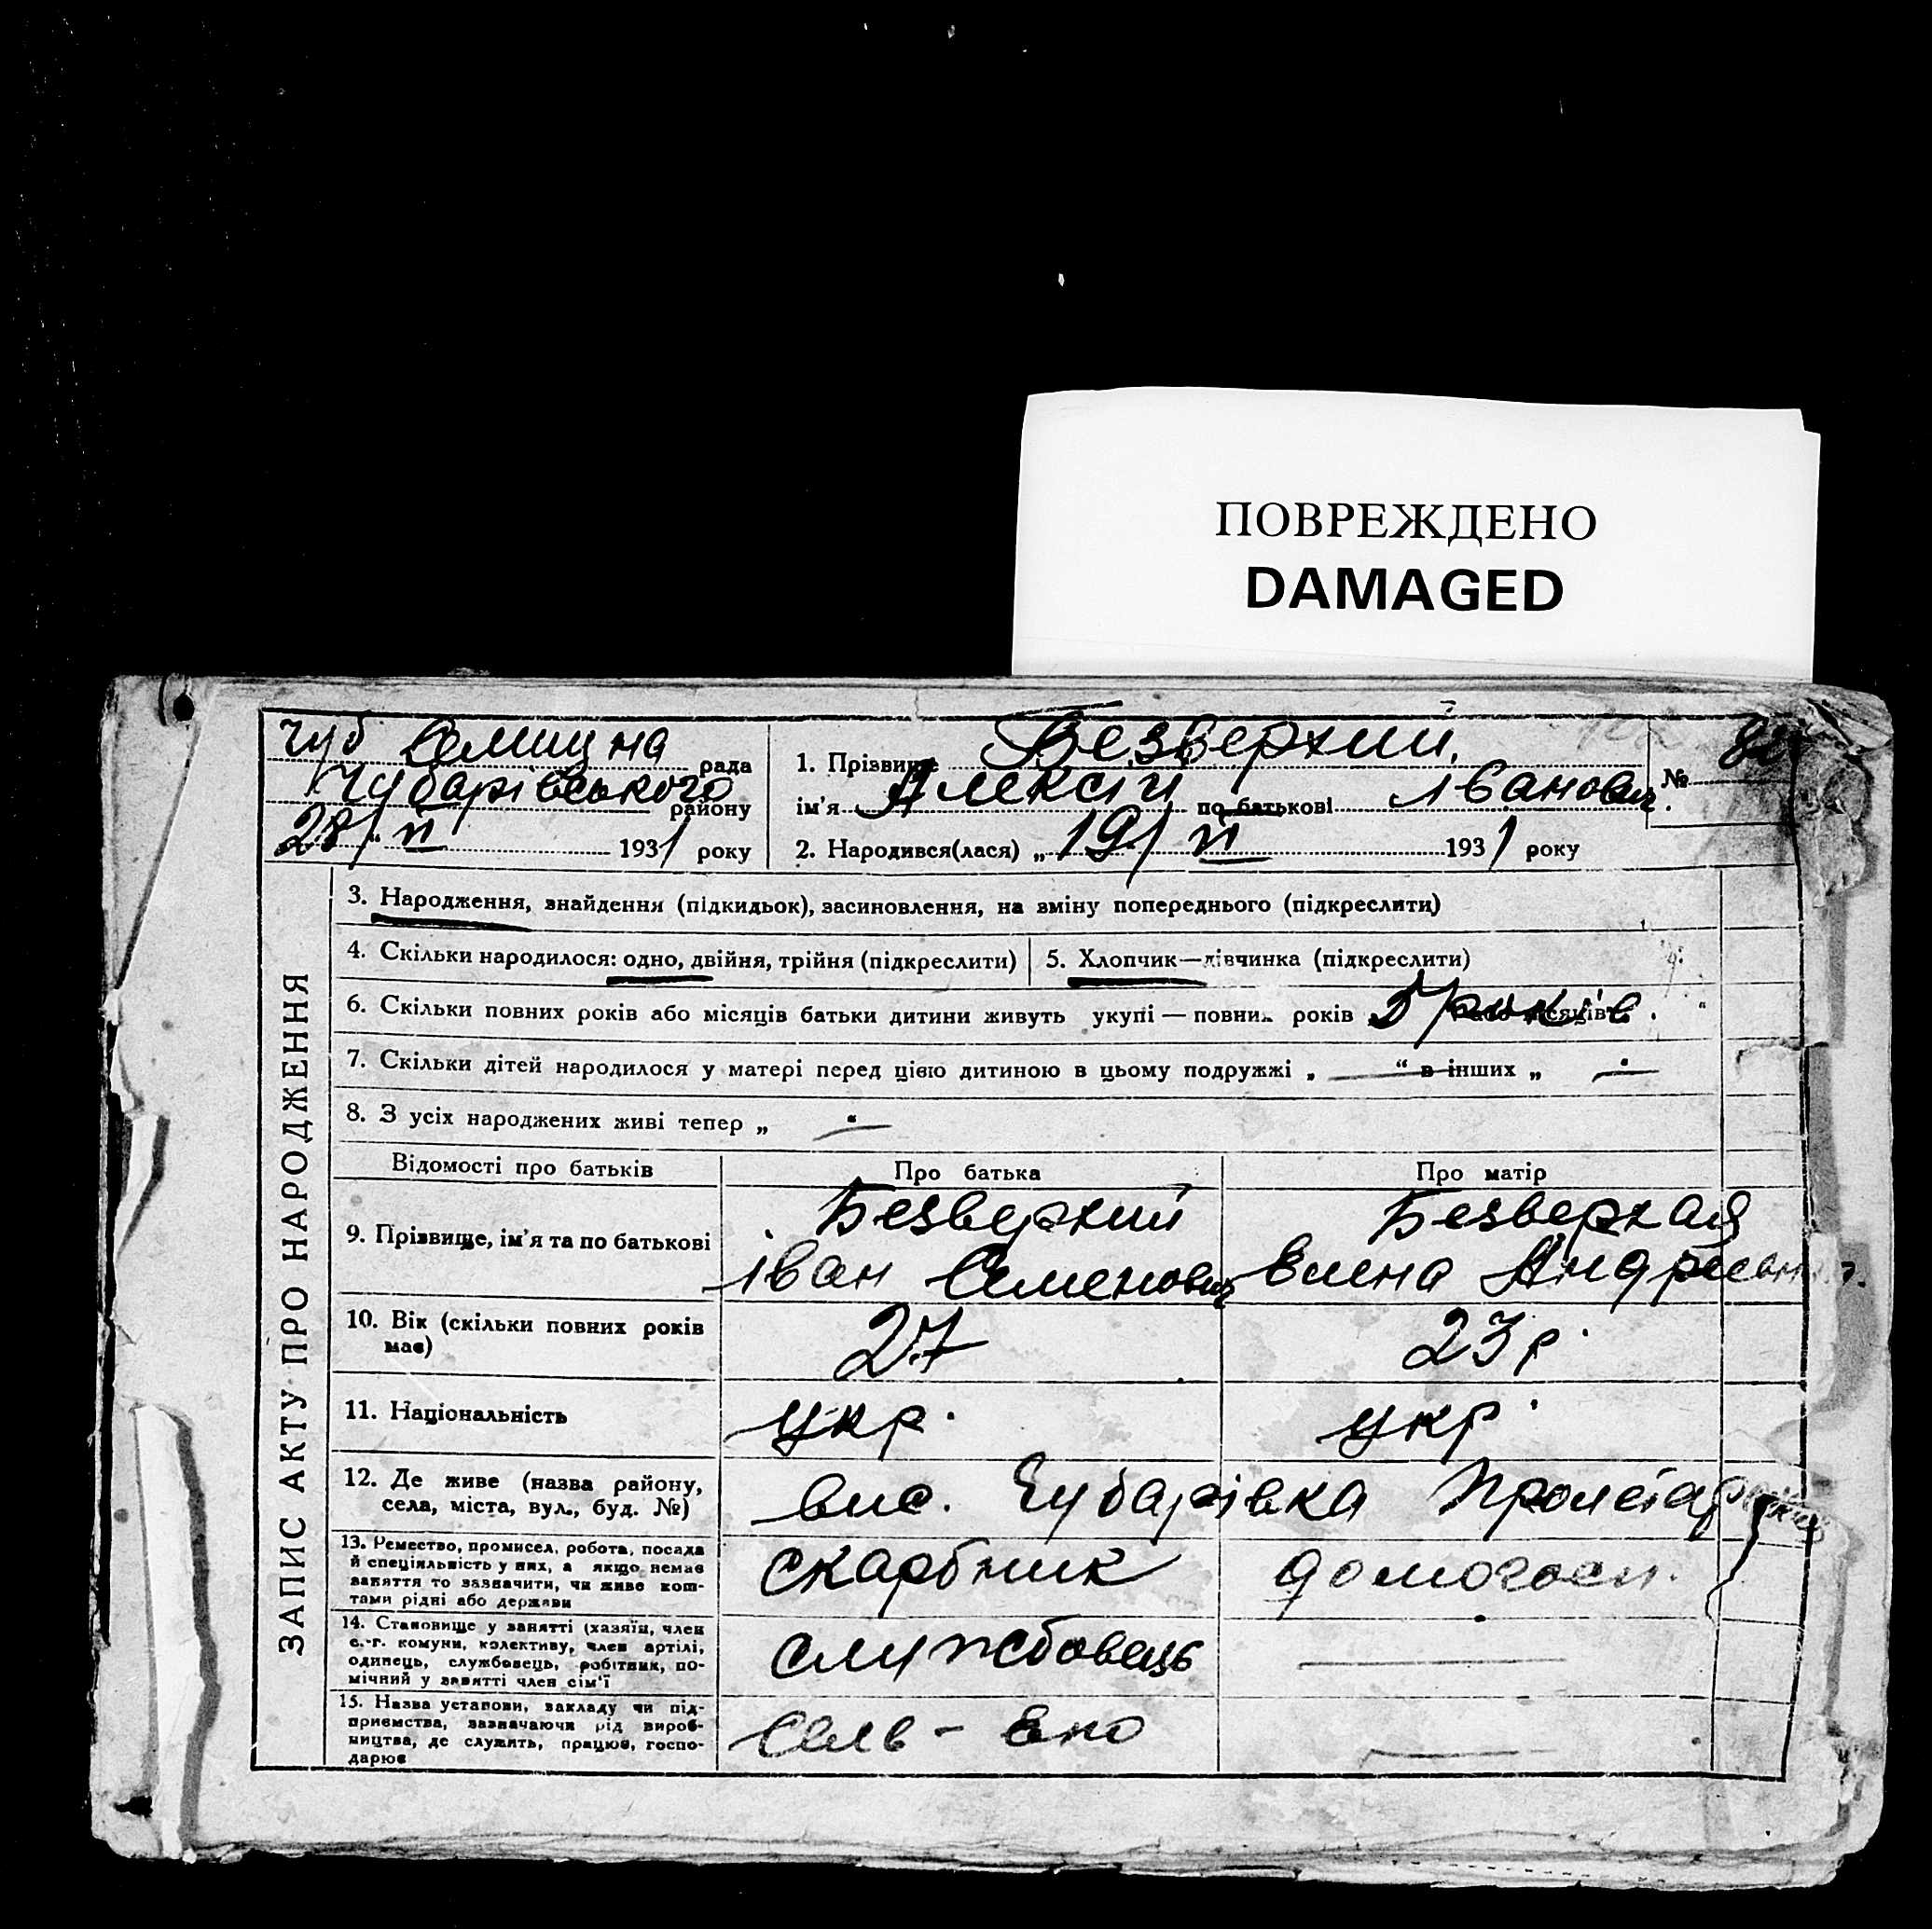 ПОВРЕЖДЕНО
DAMAGED
Чуб Селищна рада
Чубарівського району
28/VI 1931 року
1. Прізвище Безверхий.
ім'я Алексій по батькові Іванович.
№
2. Народився(лася) „ 19/VI 1931 року
ЗАПИС АКТУ ПРО НАРОДЖЕННЯ
3. Народження, знайдення (підкидьок), засиновлення, на зміну попереднього (підкреслити)
4. Скільки народилося: одно, двійня, трійня (підкреслити)
5. Хлопчик—дівчинка (підкреслити)
6. Скільки повних років або місяців батьки дитини живуть укупі — повних років 5/років.
7. Скільки дітей народилося у матері перед цією дитиною в цьому подружжі „ — “ в інших „ — “
8. З усіх народжених живі тепер „ — “
Відомості про батьків Про батька Про матір
9. Прізвище, ім'я та по батькові
Безверхий
Іван Семенович
Безверхая
Елена Андріевна
10. Вік (скільки повних років
має)
27
23 р.
11. Національність
укр.
укр.
12. Де живе (назва району,
села, міста, вул., буд. №)
вис. Чубарівка
13. Ремество, промисел, робота, посада
й спеціяльність у них, а якщо немає
заняття то зазначити, чи живе кош-
тами рідні або держави
скарбник
домогосп.
14. Становище у занятті (хазяїн, член
с.-г. комуни, колективу, член артілі,
одинець, службовець, робітник, по-
мічний у занятті член сім'ї
службовець
—
15. Назва установи, закладу чи під-
приємства, зазначаючи рід вироб-
ництва, де служить, працює, госпо-
дарює
—